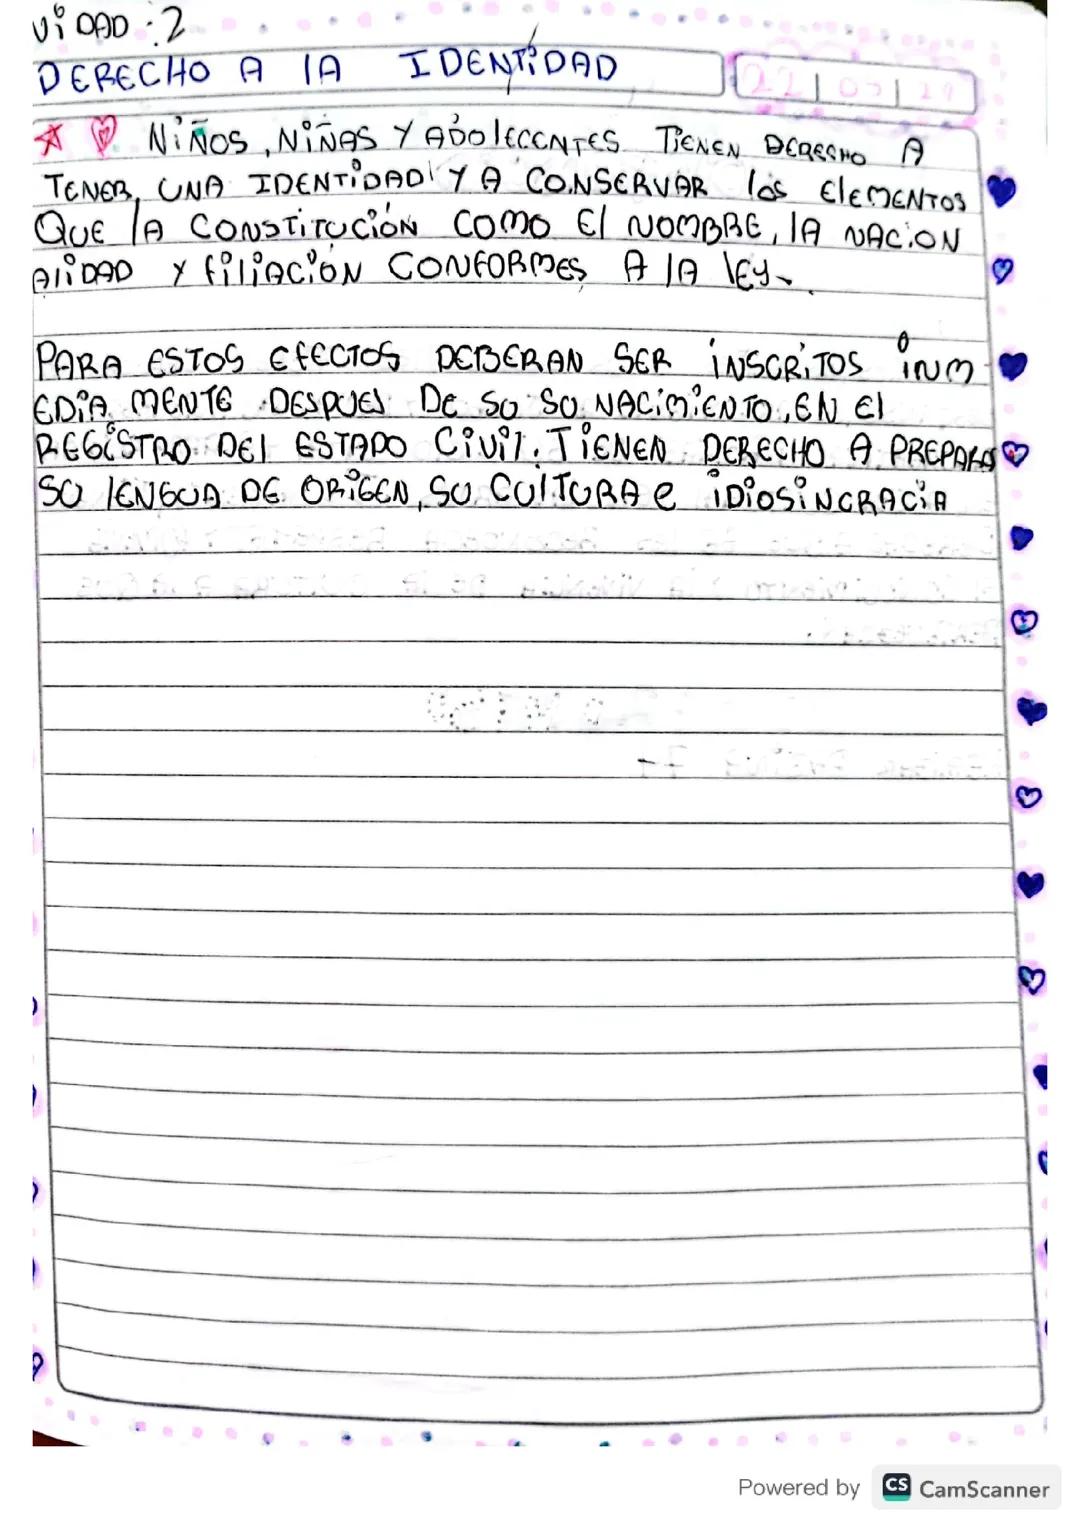 ViDAD:2
DERECHO A lA IDENTiDAD
22|03|24
NiÑOS, NiÑAS Y ADOlECENTES TiENEN DERECHO A
TENER, UNA IDENTiDAD Y A CONSERVAR los ElEMENTOS
QUE lA CONSTiTUCiÓN COMO El NOMBRE, lA NACiON
AliDAD Y filiACiÓN CONFORMES A lA lEY.
PARA ESTOS EfECTOS DEBERAN SER iNSCRiTOS iNM
EDiA MENTE DESPUES DE SU SU NACiMiENTO, EN El
REGiSTRO DEl ESTADO CiVil. TiENEN DERECHO A PREPARAS
SU lENGUA DE ORiGEN, SU CUlTURA e iDiOSiNCRACiA
Powered by CS CamScanner